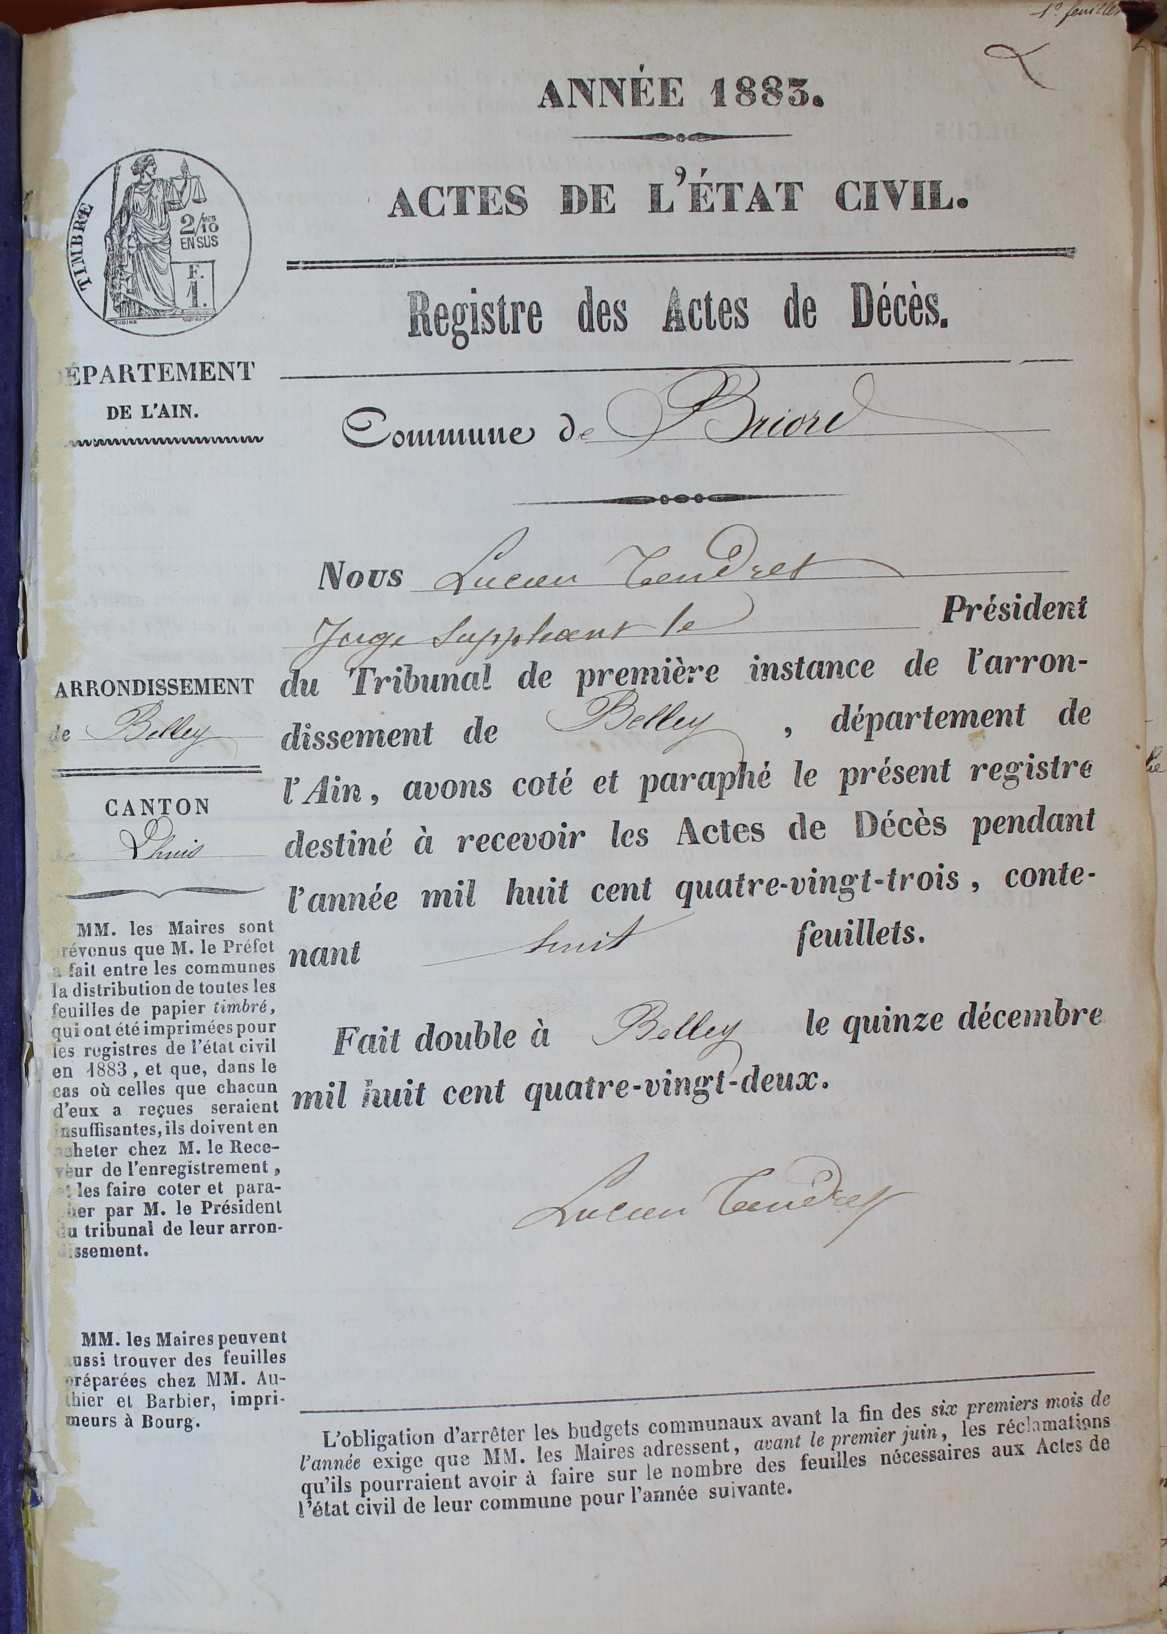 1er feuillet
ANNÉE 1883.
ACTES DE L'ÉTAT CIVIL.
TIMBRE
2/10
EN SUS
F.
1.
Registre des Actes de Décès.
DÉPARTEMENT
DE L'AIN.
Commune de Briord
Nous Lucien Tendret
Juge Suppléant le Président
du Tribunal de première instance de l'arron-
dissement de Belley, département de
l'Ain, avons coté et paraphé le présent registre
destiné à recevoir les Actes de Décès pendant
l'année mil huit cent quatre-vingt-trois, conte-
nant huit feuillets.
Fait double à Belley le quinze décembre
mil huit cent quatre-vingt-deux.
Lucien Tendret
ARRONDISSEMENT
de Belley
CANTON
de Lhuis
MM. les Maires sont
prévenus que M. le Préfet
a fait entre les communes
la distribution de toutes les
feuilles de papier timbré,
qui ont été imprimées pour
les registres de l'état civil
en 1883, et que, dans le
cas où celles que chacun
d'eux a reçues seraient
insuffisantes, ils doivent en
acheter chez M. le Rece-
veur de l'enregistrement,
et les faire coter et para-
pher par M. le Président
du tribunal de leur arron-
dissement.
MM. les Maires peuvent
aussi trouver des feuilles
préparées chez MM. Au-
thier et Barbier, impri-
meurs à Bourg.
L'obligation d'arrêter les budgets communaux avant la fin des six premiers mois de
l'année exige que MM. les Maires adressent, avant le premier juin, les réclamations
qu'ils pourraient avoir à faire sur le nombre des feuilles nécessaires aux Actes de
l'état civil de leur commune pour l'année suivante.